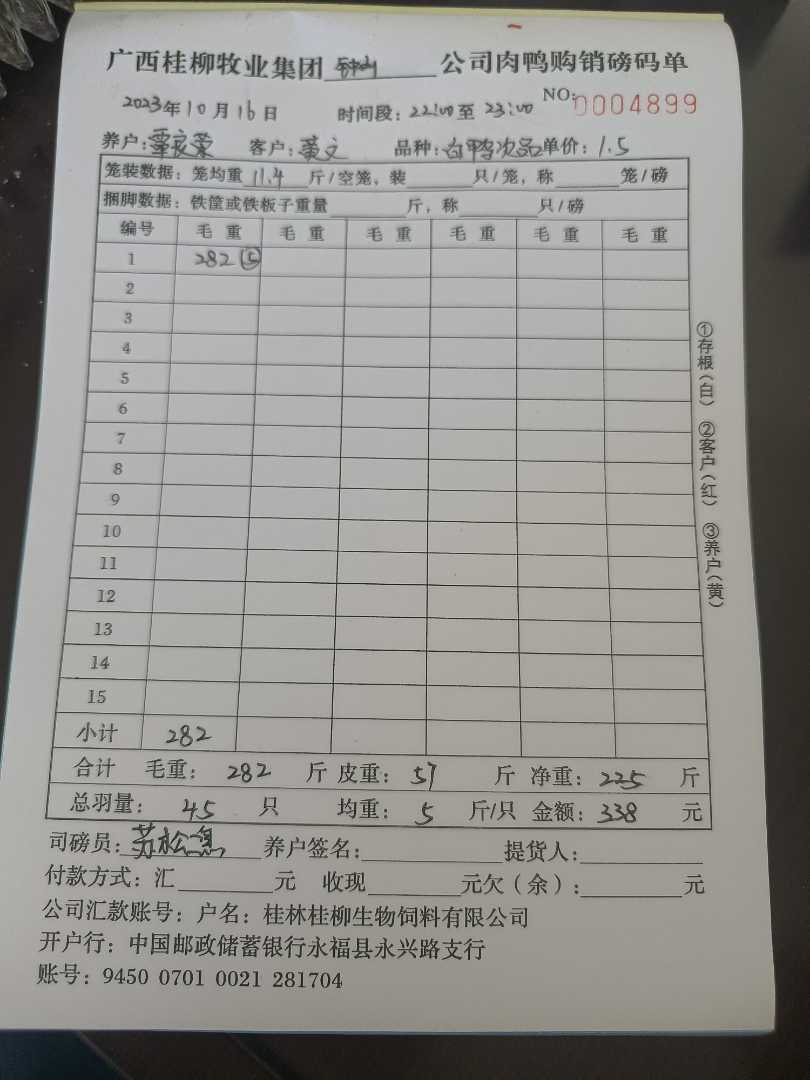 广西桂柳牧业集团钟山公司肉鸭购销磅码单
2023年10月16日 时间段：22:00至23:00 NO:0004899
养户：覃良荣 客户：黄文 品种：白鸭次品 单价：1.5
笼装数据：笼均重11.4斤/空笼，装____只/笼，称____笼/磅
捆脚数据：铁筐或铁板子重量____斤，称____只/磅
编号 毛重 毛重 毛重 毛重 毛重 毛重
1 282⑤
2
3
4
5
6
7
8
9
10
11
12
13
14
15
小计 282
合计 毛重：282斤 皮重：57斤 净重：225斤
总羽量：45只 均重：5斤/只 金额：338元
司磅员：苏松 养户签名：____提货人：____
付款方式：汇____元 收现____元欠（余）：____元
公司汇款账号：户名：桂林桂柳生物饲料有限公司
开户行：中国邮政储蓄银行永福县永兴路支行
账号：9450 0701 0021 281704
①存根（白） ②客户（红） ③养户（黄）